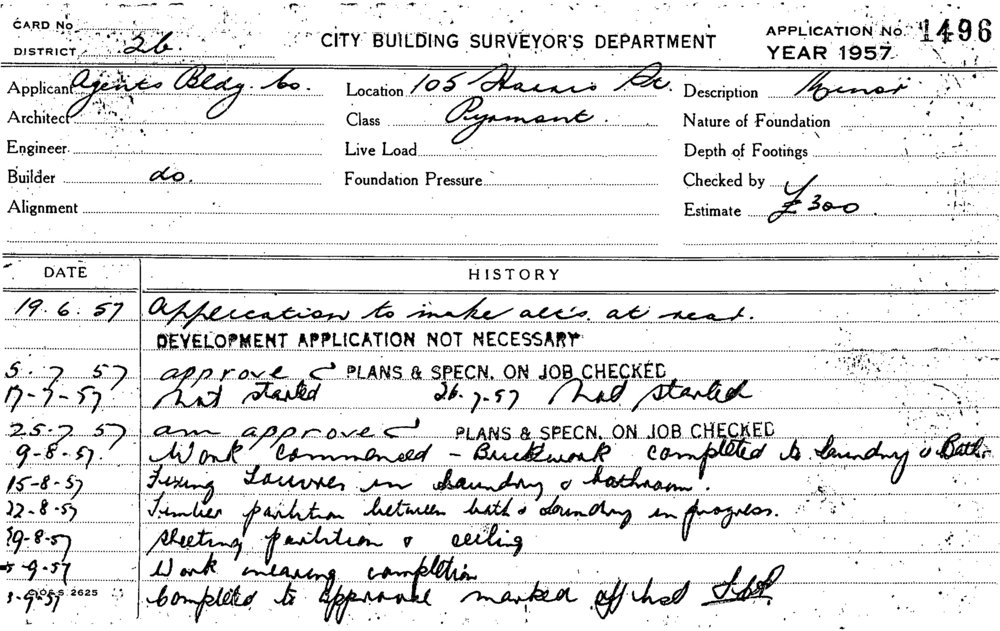 CARD No
DISTRICT 26
CITY BUILDING SURVEYOR'S DEPARTMENT
APPLICATION No. 1496
YEAR 1957
Applicant Agents Bldg. Co. Location 105 Harris St. Description Minor
Architect Class Pyrmont. Nature of Foundation
Engineer Live Load Depth of Footings
Builder do. Foundation Pressure Checked by
Alignment Estimate £300
DATE HISTORY
19.6.57 Application to make alts. at rear.
DEVELOPMENT APPLICATION NOT NECESSARY
5.7.57 approved PLANS & SPECN. ON JOB CHECKED
17-7-57 Not started 26.7.57 Not started
25.7.57 am approved PLANS & SPECN. ON JOB CHECKED
9-8-57. Work commenced - Brickwork completed to laundry & Bath.
15-8-57 Fixing Louvres in laundry & bathroom.
22-8-57 Timber partition between bath & laundry in progress.
29-8-57 Sheeting partition & ceiling
5-9-57 Work nearing completion
-9-57 Completed to approval marked off list
2625